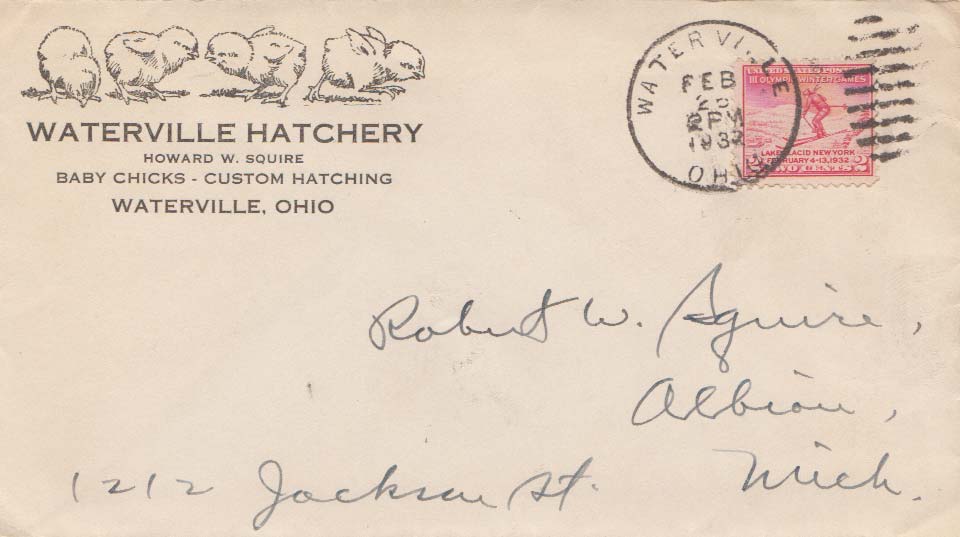 WATERVILLE HATCHERY
HOWARD W. SQUIRE
BABY CHICKS - CUSTOM HATCHING
WATERVILLE, OHIO
WATERVILLE
FEB
PM
1932
OHIO
UNITED STATES POSTAGE
III OLYMPIC WINTER GAMES
LAKE PLACID NEW YORK
FEBRUARY 4-13, 1932
2 TWO CENTS 2
Robert W. Squire,
Albion,
1212 Jackson St. Mich.